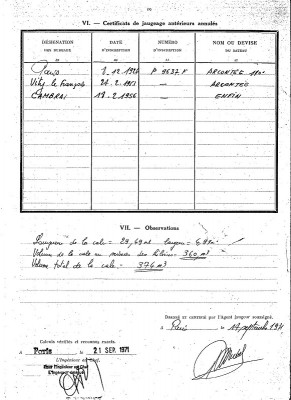 VI. — Certificats de jaugeage antérieurs annulés
DÉSIGNATION DES BUREAUX | DATE D'INSCRIPTION | NUMÉRO D'INSCRIPTION | NOM OU DEVISE DU BATEAU
Paris | 1.12.1926 | P 9637 F | ARCONTÉE
Vitry le François | 24.2.1951 | — | ARCONTÉE
CAMBRAI | 18.2.1956 | — | ENFIN
VII. — Observations
Longueur de la cale = 29,69 m largeur =
Volume de la cale au niveau des hiloires = 360 m3
Volume total de la cale = 376 m3
Dressé et certifié par l'Agent jaugeur soussigné.
A Paris, le 17 septembre 1971
Calculs vérifiés et reconnus exacts.
A Paris le 21 SEP. 1971
L'Ingénieur en Chef,
Pour l'Ingénieur en Chef
L'Ingénieur